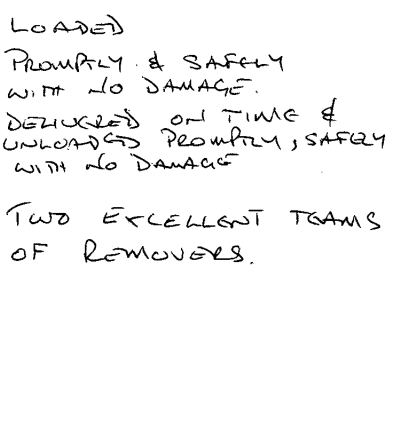 LOADED
PROMPTLY & SAFELY
WITH NO DAMAGE.
DELIVERED ON TIME &
UNLOADED PROMPTLY, SAFELY
WITH NO DAMAGE
TWO EXCELLENT TEAMS
OF REMOVERS.